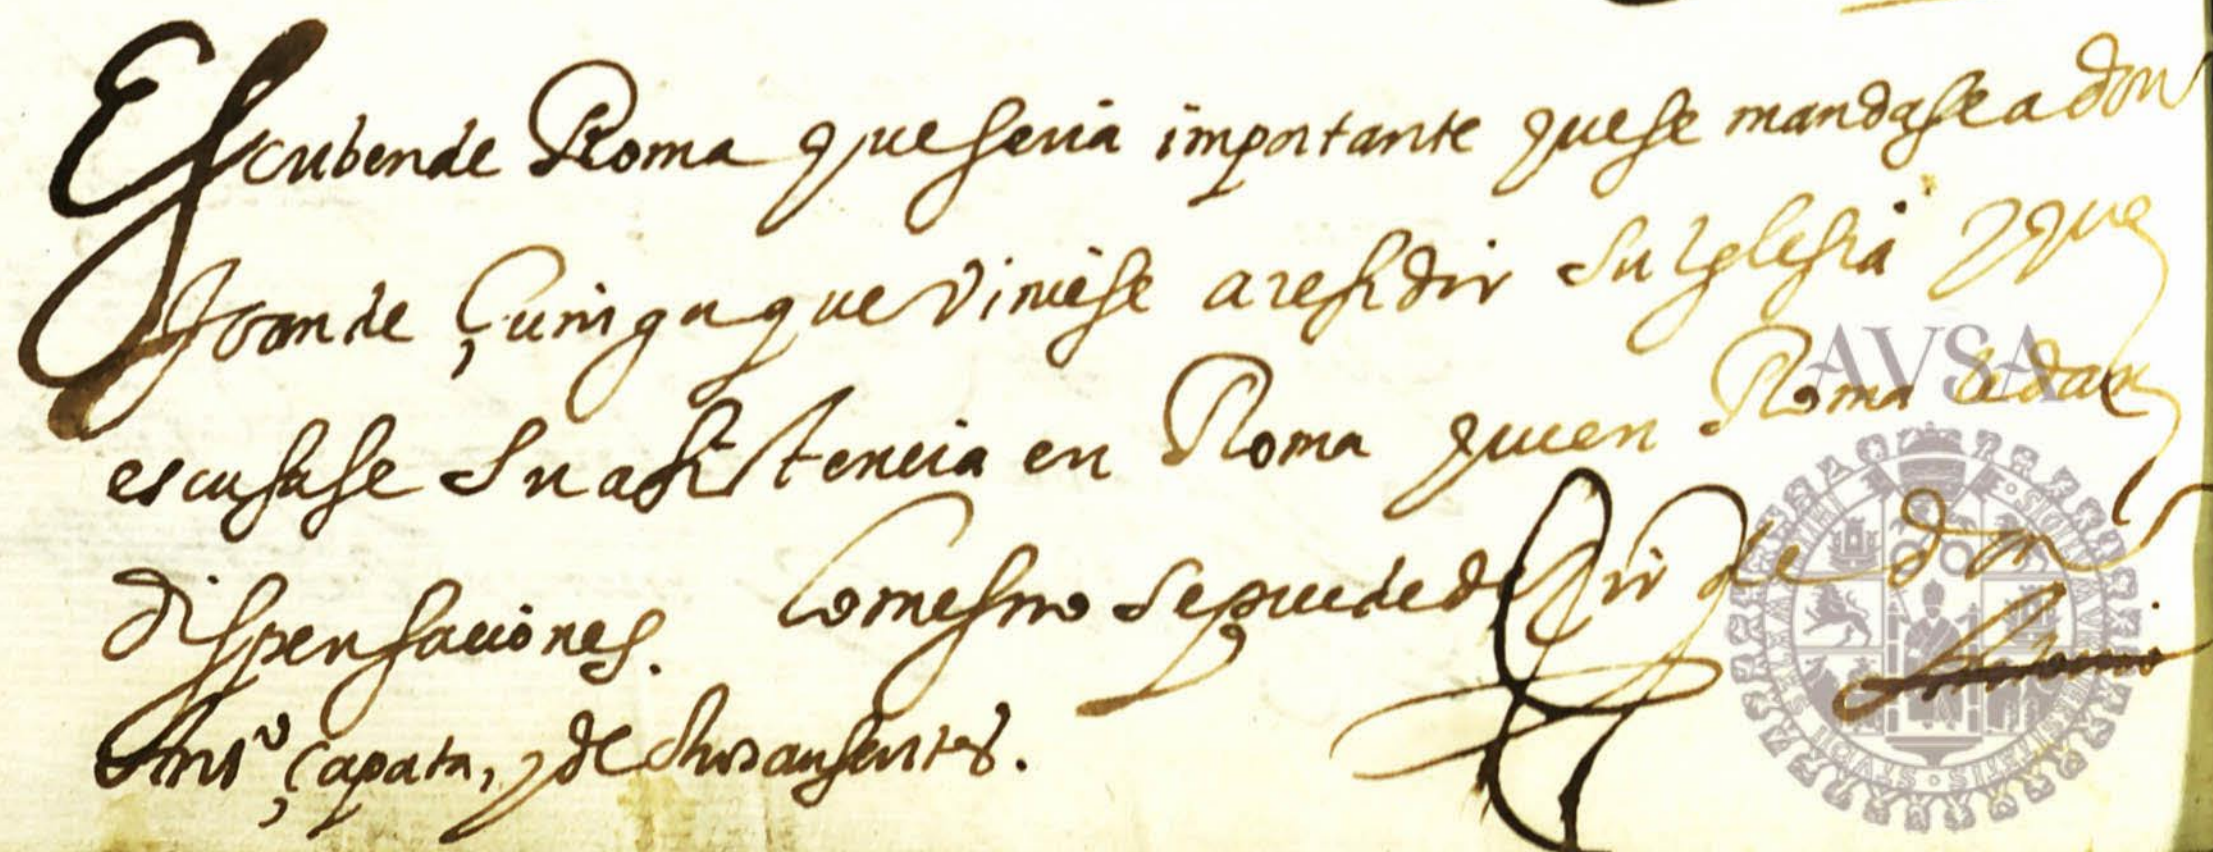 Escriben de Roma que seria importante que se mandase a don
Joan de Çuniga que viniese a residir su Iglesia y que
escusase su asistencia en Roma que en Roma le dan
dispensaciones. Lo mesmo se puede dezir de don Antonio
Antº Çapata, y de otros ausentes.
AVSA